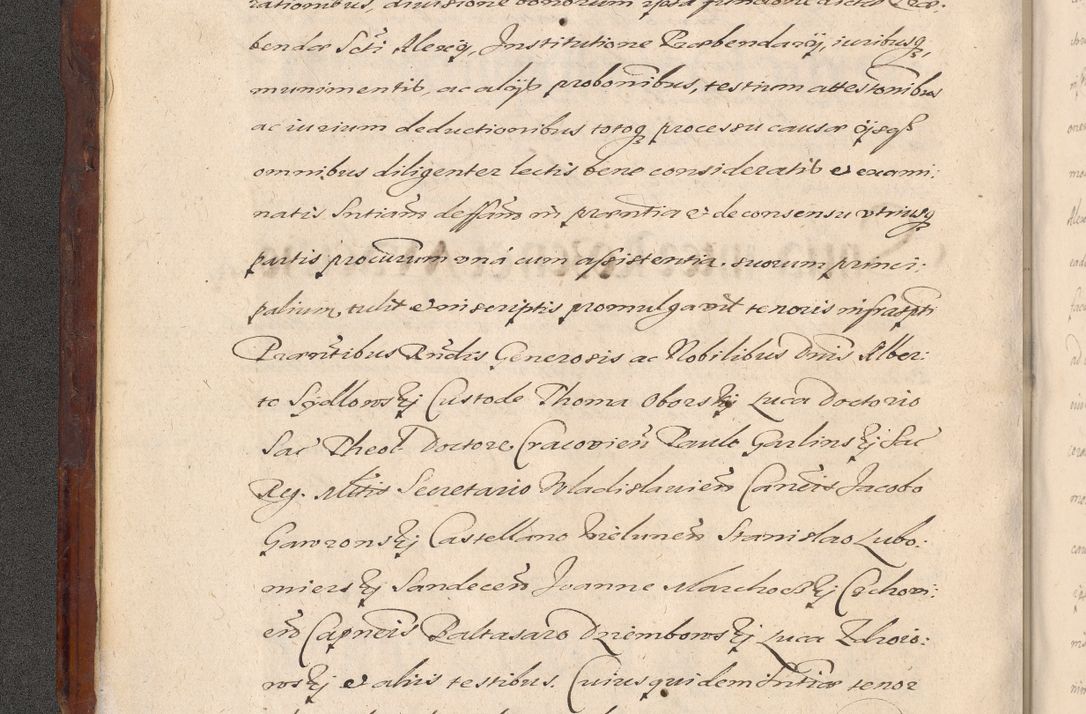 rationibus, divisione bonorum ipsa fundatione dictae Prae:
bendae Scti Alexij, Institutione Praebendarij, iuribusq,
munimentis, ac alijs probonibus, testium attestonibus
ac iurium deductionibus totoq processu causae ijsqß
omnibus diligenter lectis bene consideratis et exami:
natis Sntiam deffam in prntia et de consensu utriusq
partis procurum una cum assistentia suorum princi:
palium, tulit et in scriptis promulgavit tenoris infrascpti
Praesentibus Rndis Generosis ac Nobilibus Dnis Alber:
to Sydlowskj Custode Thoma Oborskj Luca Doctorio
Sac Theol Doctore, Cracovien Paulo Garlinskj Sac
Reg. Mttis Secretario Wladislavien Cancis Jacobo
Gawronskj Castellano Wielunen Stanislao Lubo:
mierskj Sandecen Joanne Marchockj Czchovi:
en Capneis Baltasaro Dziembowskj Luca Zdroio:
wskj et aliis testibus. Cuius quidem Sntiae tenor